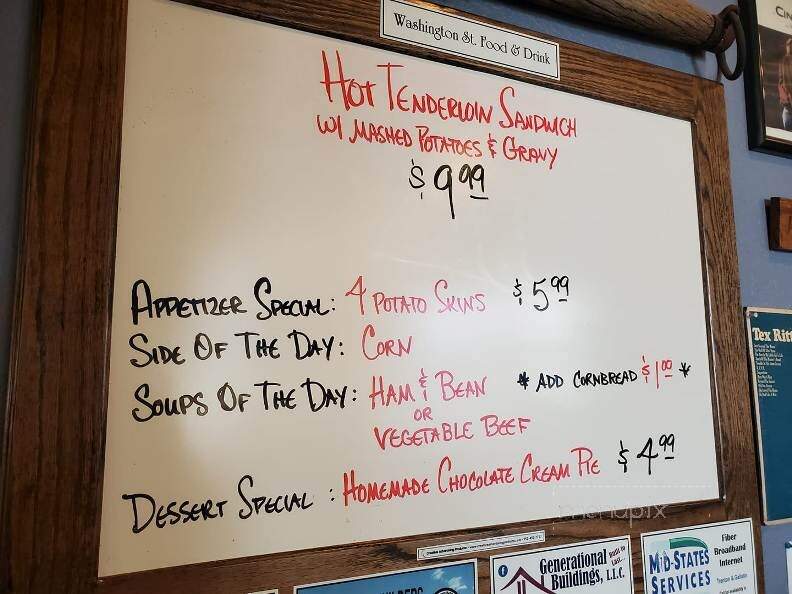 Washington St. Food & Drink
HOT TENDERLOIN SANDWICH
W/ MASHED POTATOES & GRAVY
$9.99
APPETIZER SPECIAL: 4 POTATO SKINS $5.99
SIDE OF THE DAY: CORN
SOUPS OF THE DAY: HAM & BEAN * ADD CORNBREAD $1.00 *
OR
VEGETABLE BEEF
DESSERT SPECIAL: HOMEMADE CHOCOLATE CREAM PIE $4.99
menupix
Tex Ritt
Generational
Buildings, L.L.C.
MID-STATES
SERVICES
Fiber
Broadband
Internet